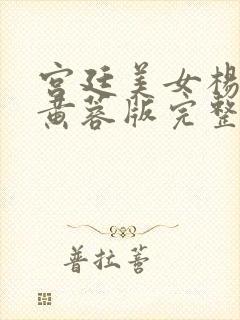 宫廷美女杨
黄蓉版完整
普拉菩